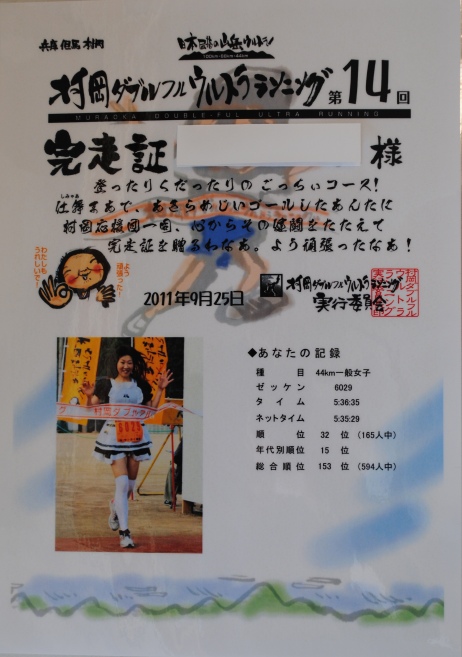 兵庫 但馬 村岡
日本最強の山岳ウルトラ!
100km・66km・44km
村岡ダブルフルウルトラランニング 第14回
MURAOKA DOUBLE-FUL ULTRA RUNNING
完走証 様
登ったりくだったりのごっちぃコース!
仕舞まで、あきらめじいゴールしたあんたに
村岡応援団一同、心からその健闘をたたえて
完走証を贈るわなあ。よう頑張ったなあ!
わたしも
うれしいで!
よう
頑張った!
2011年9月25日
村岡ダブルフルウルトラランニング
実行委員会
◆あなたの記録
種 目 44km一般女子
ゼッケン 6029
タイム 5:36:35
ネットタイム 5:35:29
順 位 32 位 (165人中)
年代別順位 15 位
総合順位 153 位 (594人中)
村岡ダブルフル
6029